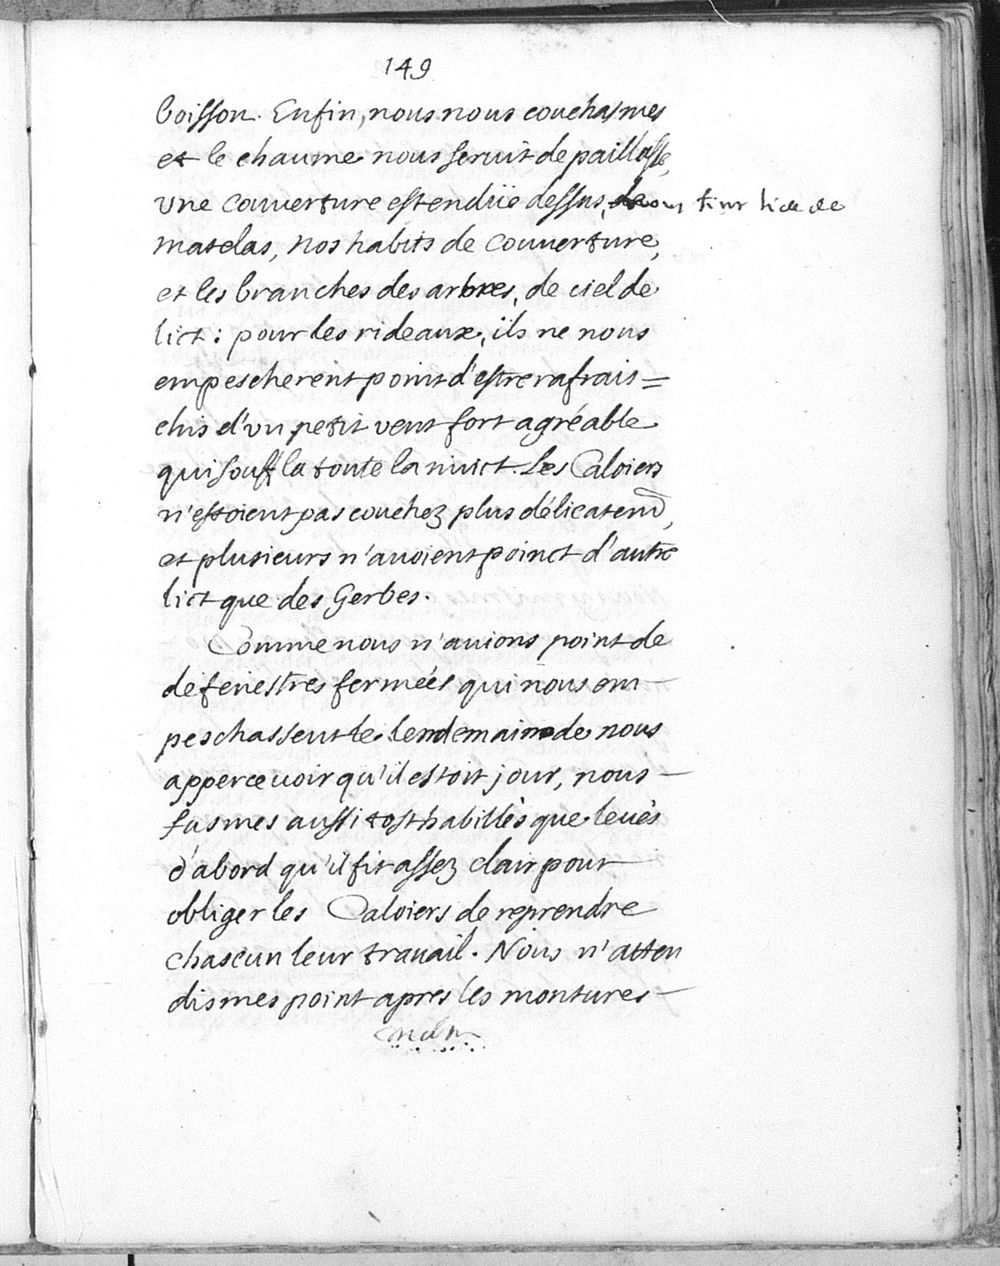 149
boisson. Enfin, nous nous couchasmes
et le chaume nous seruit de paillasse,
vne couuerture estendüe dessus, nous tint lieu de
matelas, nos habits de couuerture,
et les branches des arbres, de ciel de
lict : pour les rideaux, ils ne nous
empescherent point d'estre rafrais=
chis d'vn petit vent fort agréable
qui souffla toute la nuict. Les Caloiers
n'estoient pas couchez plus délicatemt,
et plusieurs n'auoient poinct d'autre
lict que des Gerbes.
Comme nous n'auions point de
de fenestres fermées qui nous em-
peschassent le lendemain de nous
apperceuoir qu'il estoit jour, nous
fusmes aussi tost habillés que leués
d'abord qu'il fit assez clair pour
obliger les Caloiers de reprendre
chascun leur trauail. Nous n'atten
dismes point apres les montures